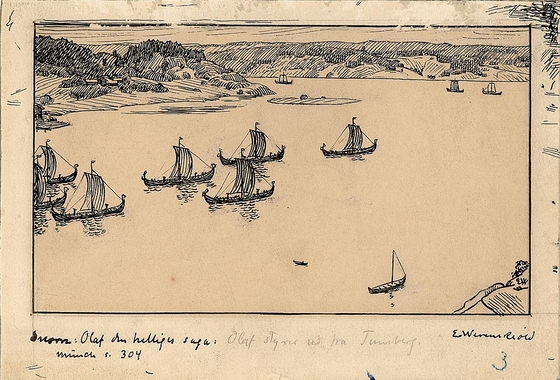 Snorre: Olaf den helliges saga: Olaf styrer ud fra Tunsberg.
E. Werenskiold
minde s. 304
3